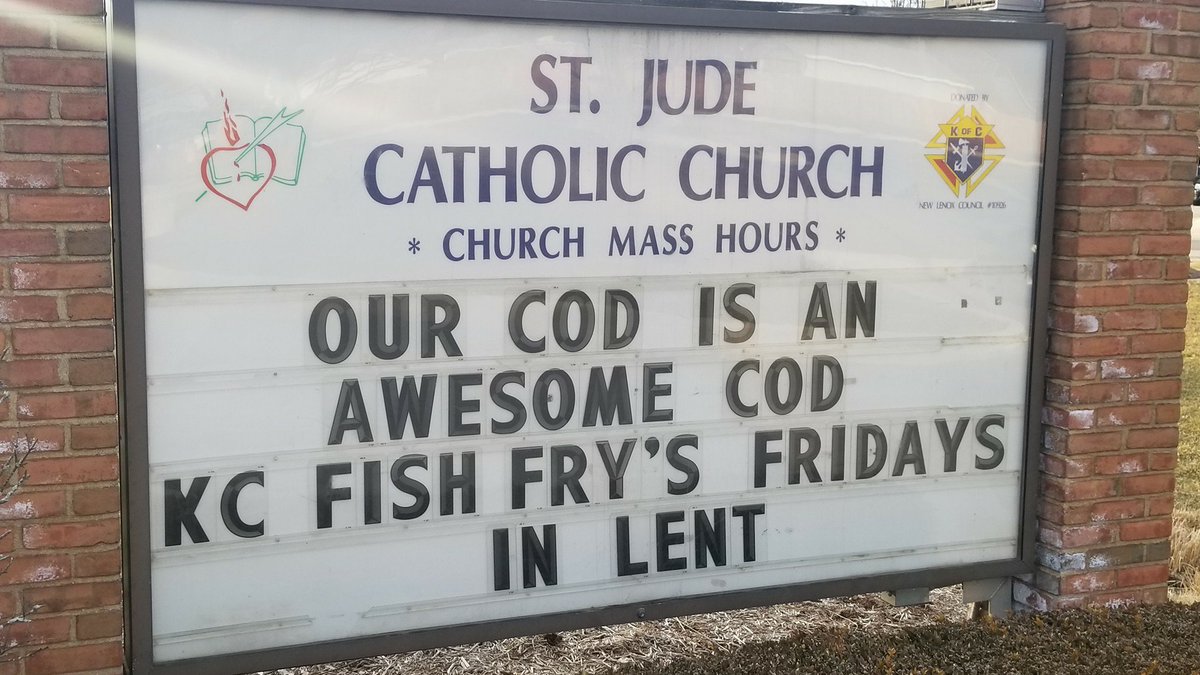 ST. JUDE
CATHOLIC CHURCH
* CHURCH MASS HOURS *
DONATED BY
K OF C
NEW LENOX COUNCIL #10926
OUR COD IS AN
AWESOME COD
KC FISH FRY'S FRIDAYS
IN LENT